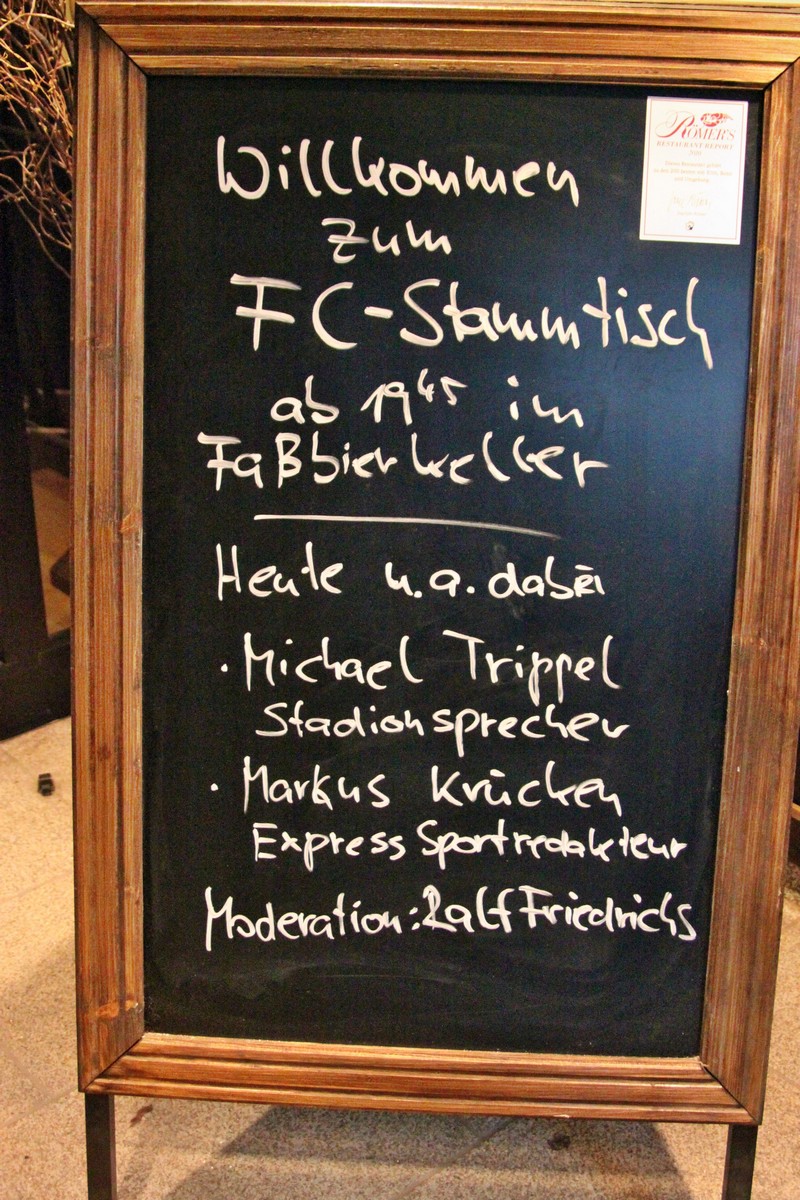 Willkommen
zum
FC-Stammtisch
ab 19⁴⁵ im
Faßbierkeller
Heute u.a. dabei
· Michael Trippel
Stadionsprecher
· Markus Krücken
Express Sportredakteur
Moderation: Ralf Friedrichs
RÖMER'S
RESTAURANT REPORT